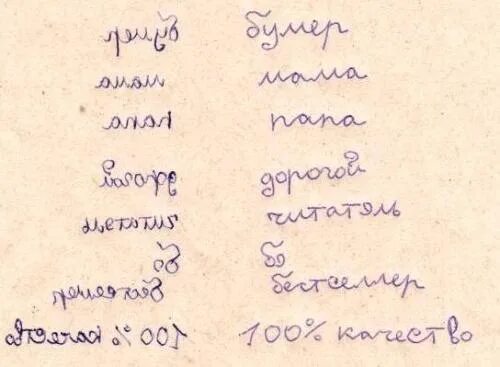 бумер бумер
мама мама
папа папа
дорогой дорогой
читатель читатель
бестселлер бестселлер
100% качество 100% качество